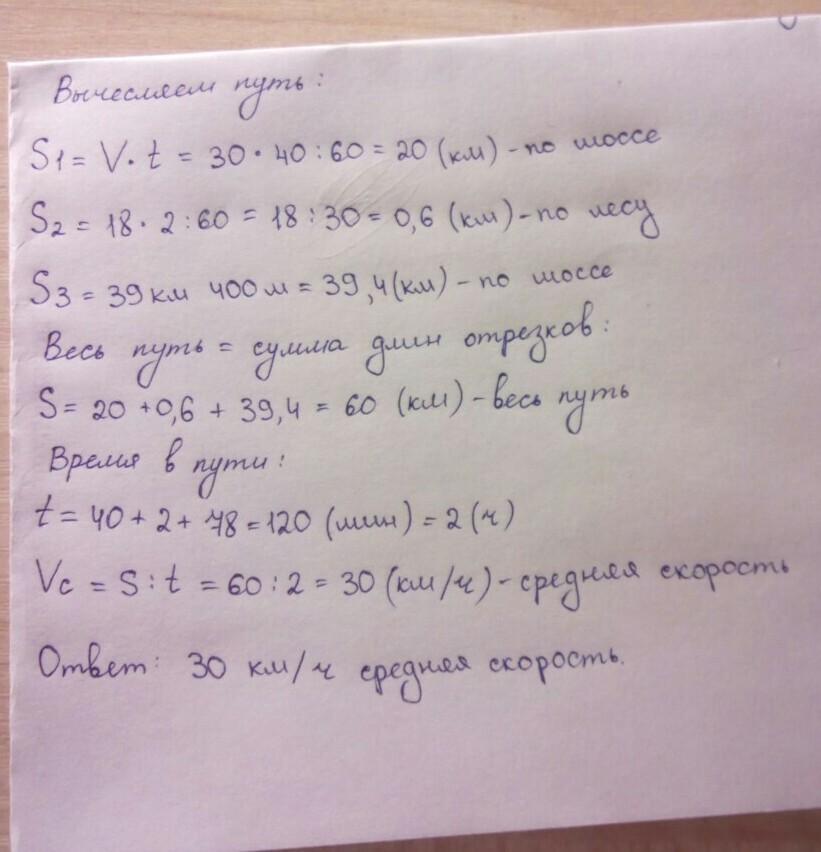 Вычесляем путь:
S1 = V · t = 30 · 40 : 60 = 20 (км) - по шоссе
S2 = 18 · 2 : 60 = 18 : 30 = 0,6 (км) - по лесу
S3 = 39 км 400 м = 39,4 (км) - по шоссе
Весь путь = сумма длин отрезков:
S = 20 + 0,6 + 39,4 = 60 (км) - весь путь
Время в пути:
t = 40 + 2 + 78 = 120 (мин) = 2 (ч)
Vc = S : t = 60 : 2 = 30 (км/ч) - средняя скорость
Ответ: 30 км/ч средняя скорость.